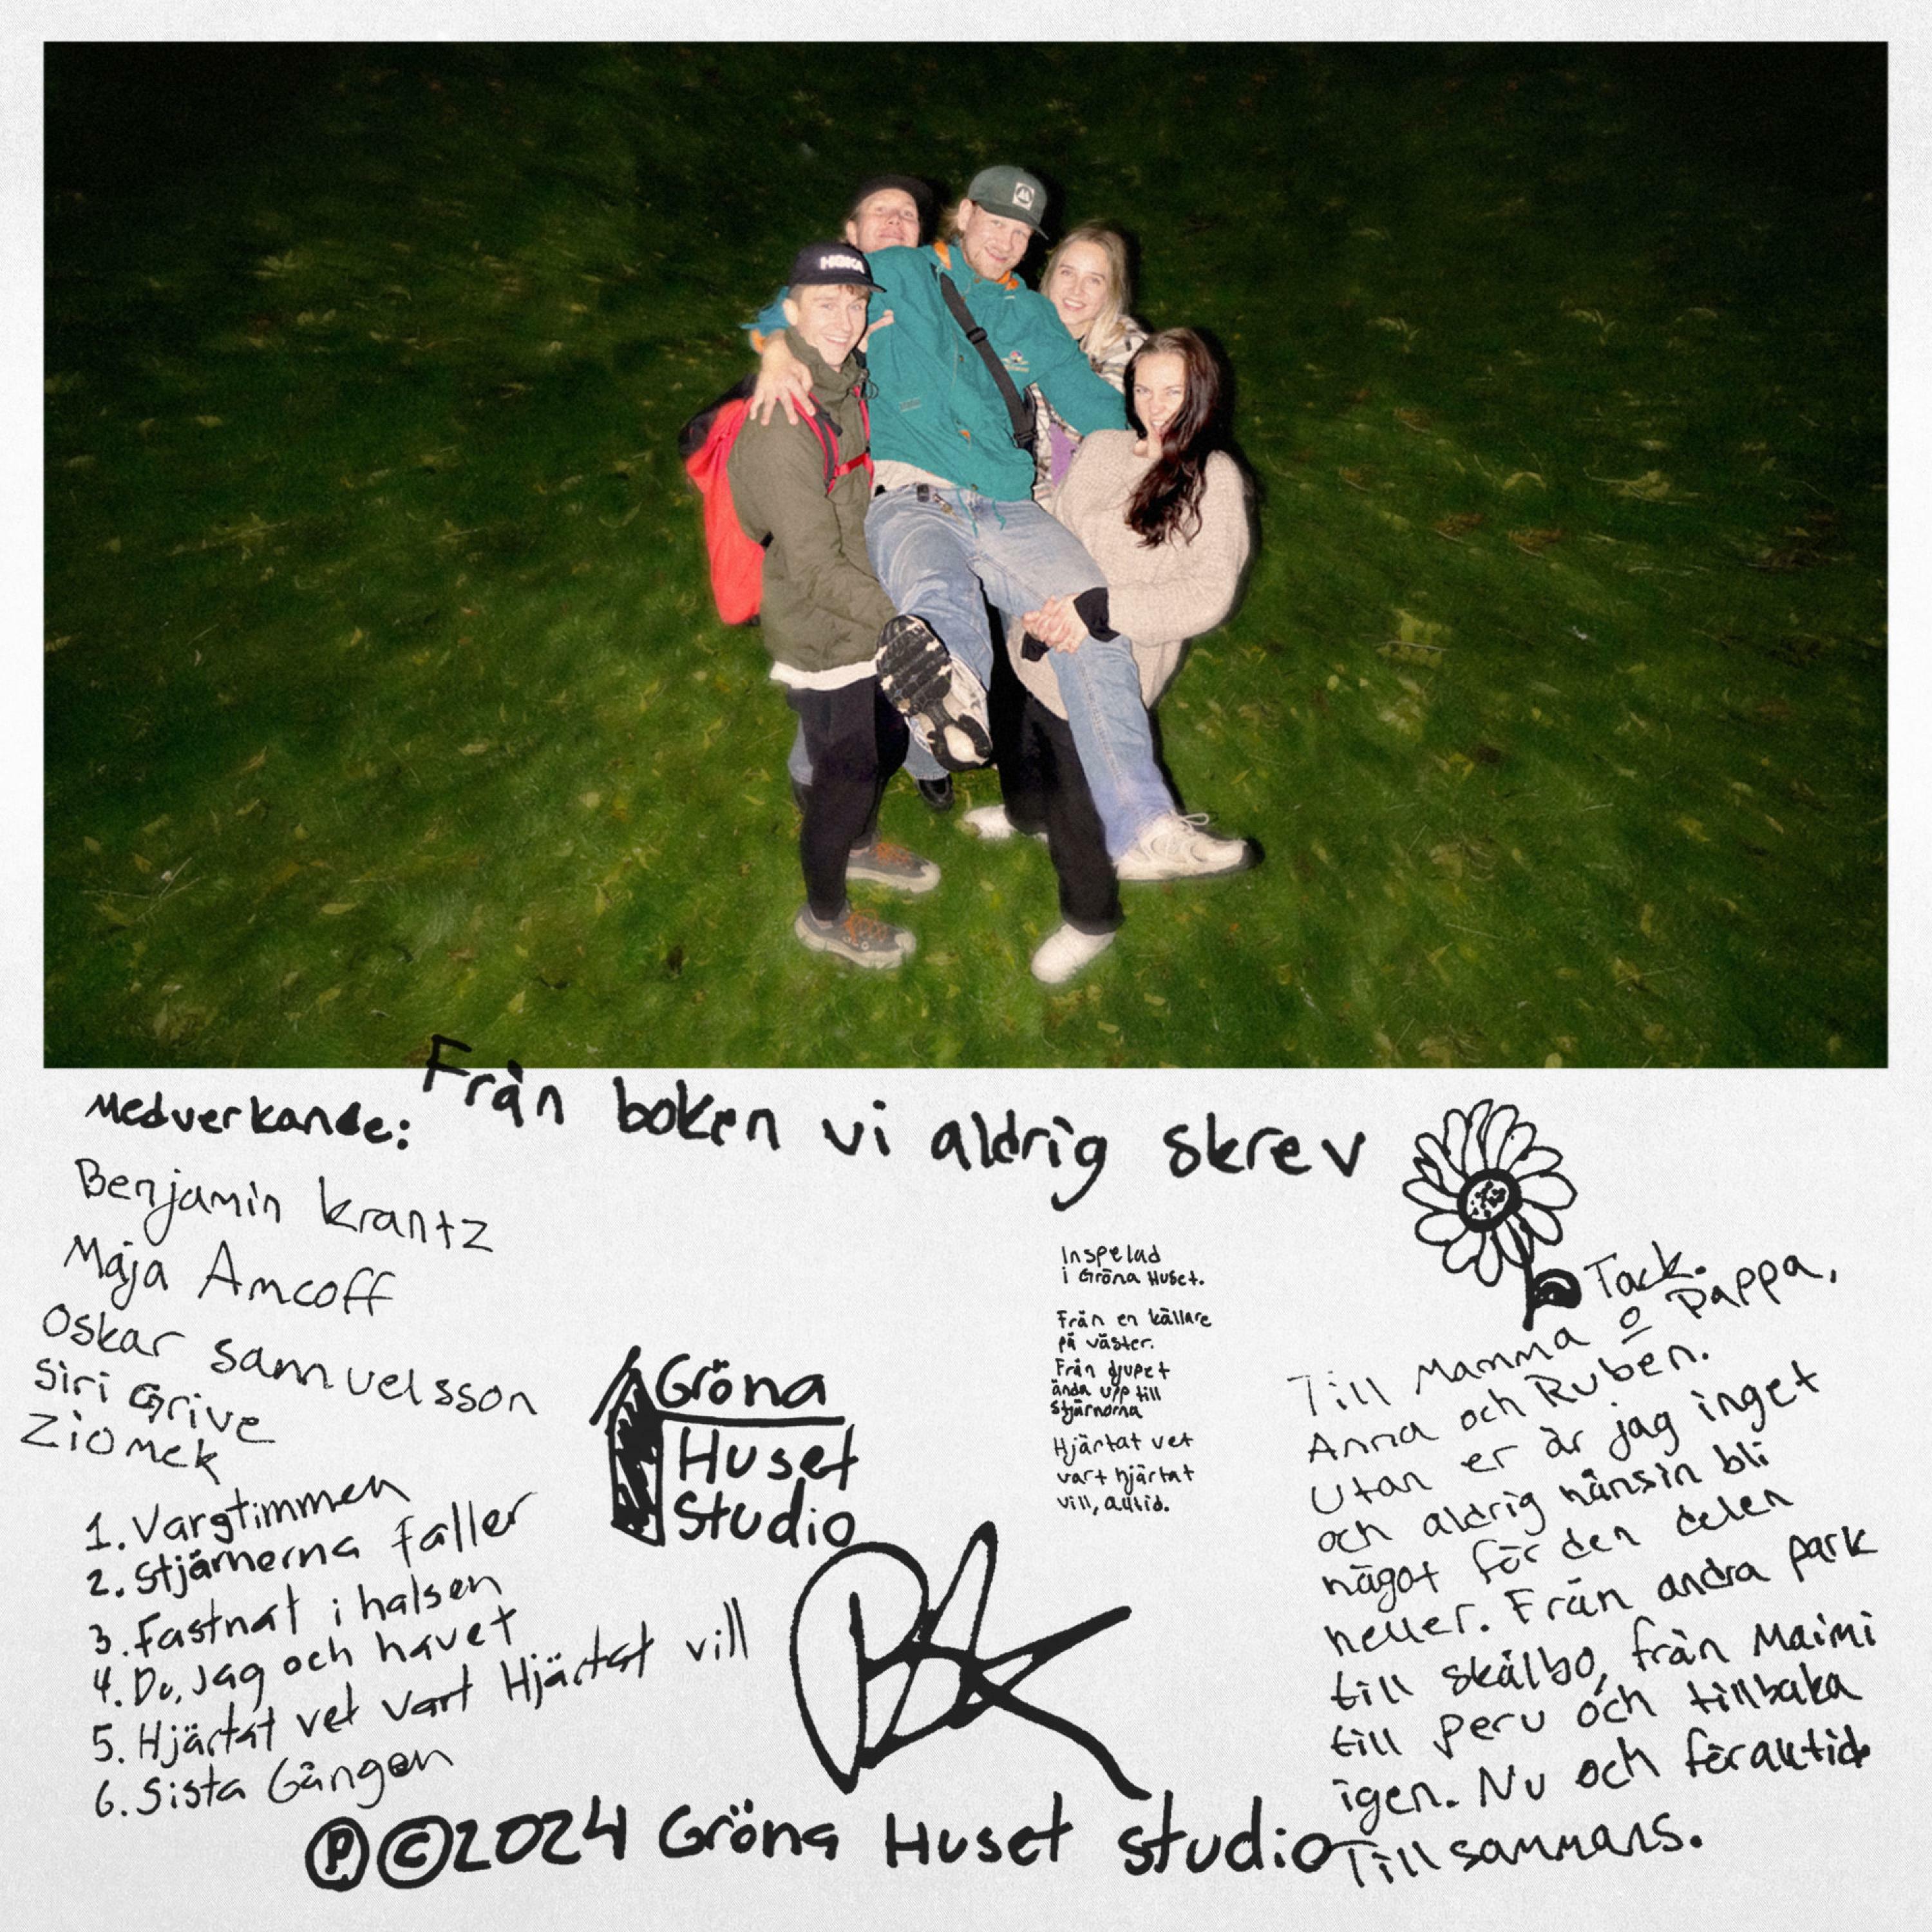 HOKA
Från boken vi aldrig skrev
Medverkande:
Benjamin Krantz
Maja Amcoff
Oskar Samuelsson
Siri Grive
Ziomek
1. Vargtimmen
2. Stjärnerna faller
3. Fastnat i halsen
4. Du, Jag och havet
5. Hjärtat vet vart Hjärtat vill
6. Sista Gången
Gröna
Huset
Studio
Inspelad
i Gröna Huset.
Från en källare
på väster.
Från djupet
ända upp till
Stjärnorna
Hjärtat vet
vart hjärtat
vill, alltid.
Tack.
Till Mamma o Pappa,
Anna och Ruben.
Utan er är jag inget
och aldrig nånsin bli
något för den delen
heller. Från andra park
till skälbo, från Maimi
till peru och tillbaka
igen. Nu och föralltid
Tillsammans.
Ⓟ©2024 Gröna Huset studio